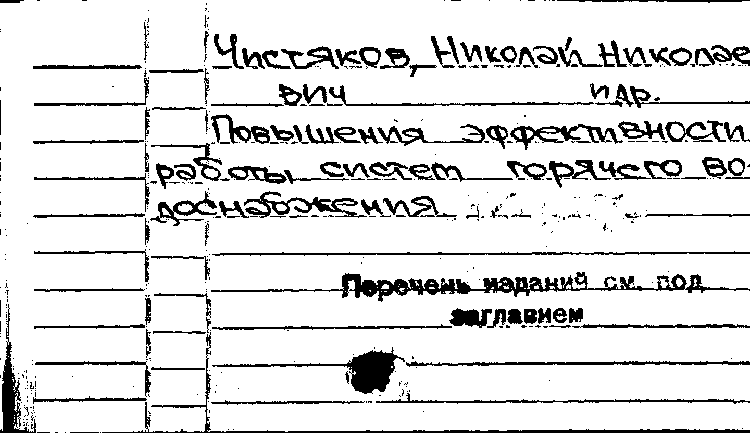 Чистяков, Николай Николае
вич и др.
Повышения эффективности
работы систем горячего во-
доснабжения
Перечень изданий см. под
заглавием